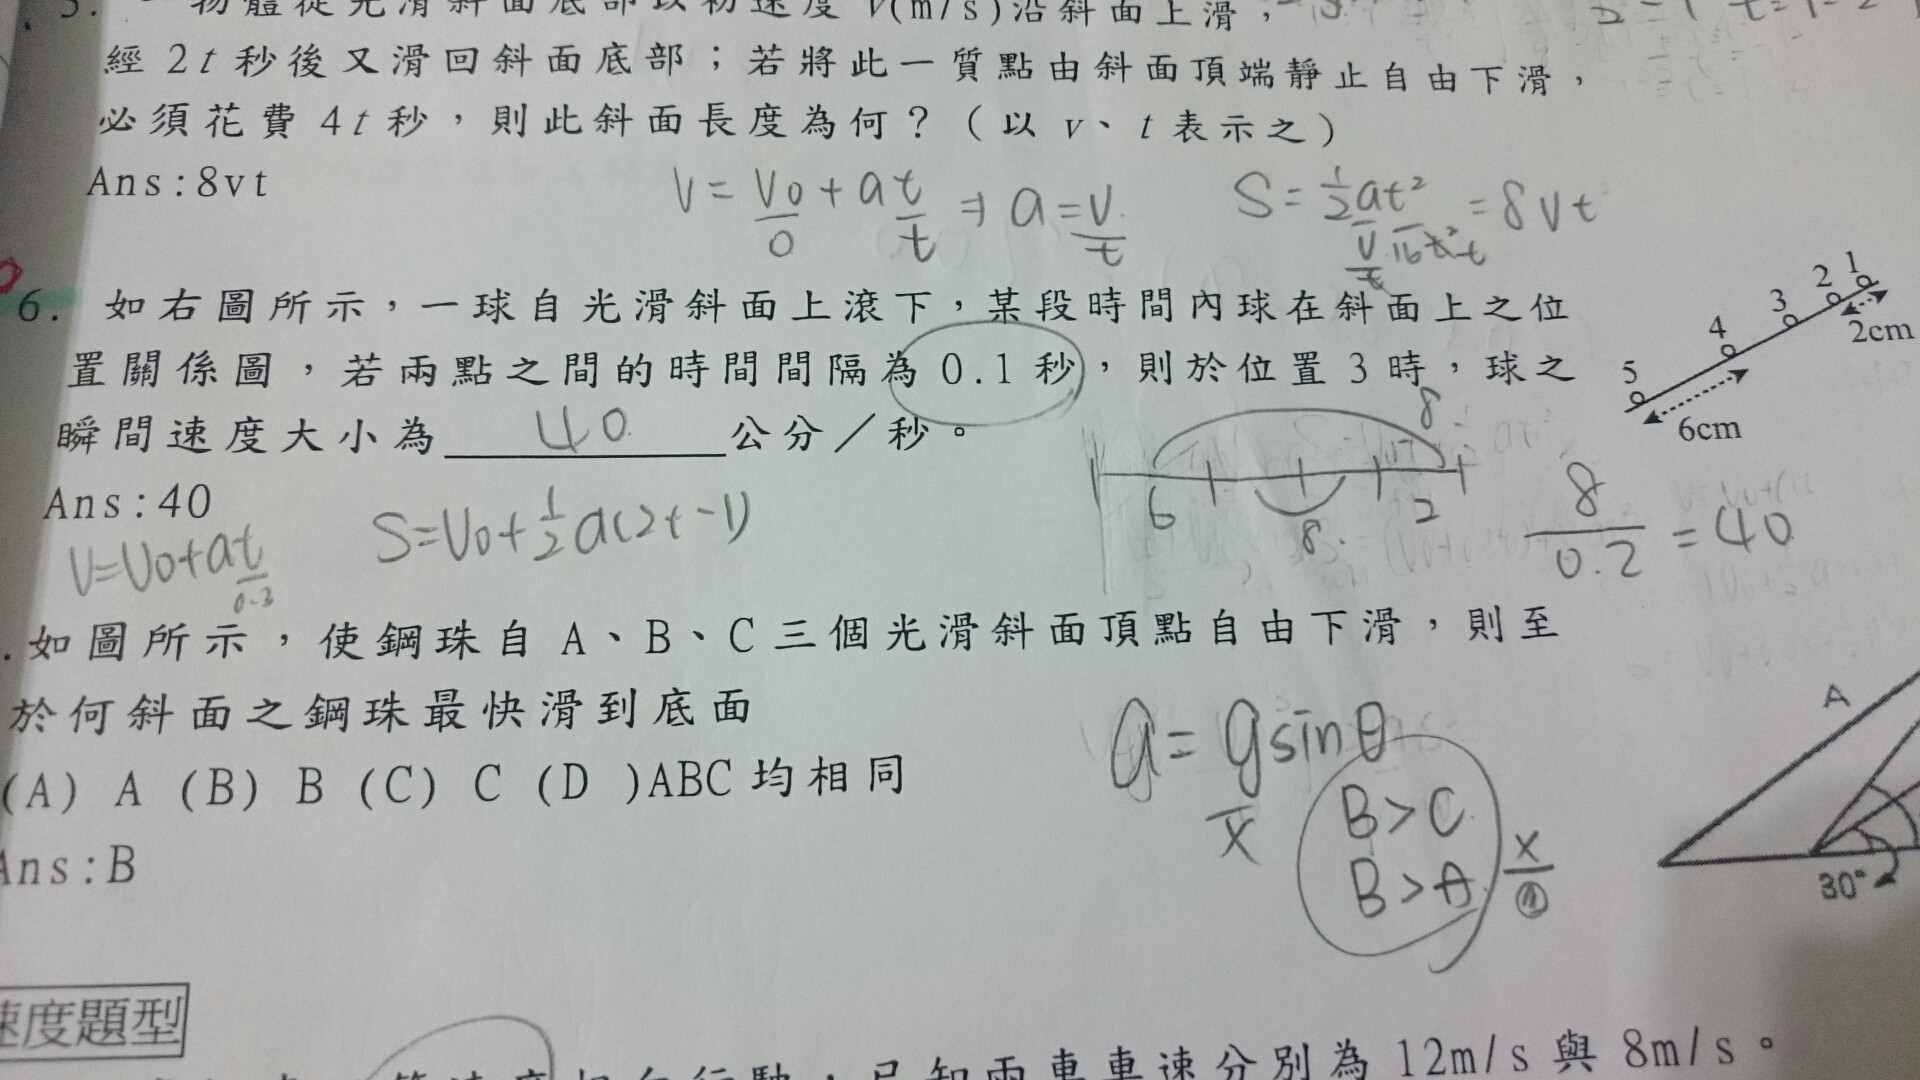 5. 一物體從光滑斜面底部以初速度 v(m/s)沿斜面上滑,
經 2t 秒後又滑回斜面底部;若將此一質點由斜面頂端靜止自由下滑,
必須花費 4t 秒,則此斜面長度為何?(以 v、t 表示之)
Ans:8vt
V=V0+at ⇒ a=V/t
0 t
S=½at²=8Vt
V/t 16t² t
6. 如右圖所示,一球自光滑斜面上滾下,某段時間內球在斜面上之位
置關係圖,若兩點之間的時間間隔為 0.1 秒,則於位置 3 時,球之
瞬間速度大小為 40 公分/秒。
1
2
3
4
5
2cm
6cm
Ans:40
V=V0+at
0.3
S=V0+½a(2t-1)
8
6
8.
2
8/0.2=40
.如圖所示,使鋼珠自 A、B、C 三個光滑斜面頂點自由下滑,則至
於何斜面之鋼珠最快滑到底面
(A) A (B) B (C) C (D )ABC 均相同
Ans:B
a=gsinθ
X
B>C
B>A
X
A
30°
速度題型
12m/s 與 8m/s。